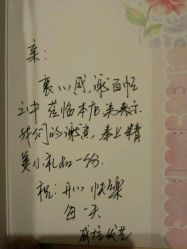 亲：
衷心感谢百忙
之中莅临本店为表示
我们的谢意奉上精
美小礼品一份
祝：开心快乐
每一天